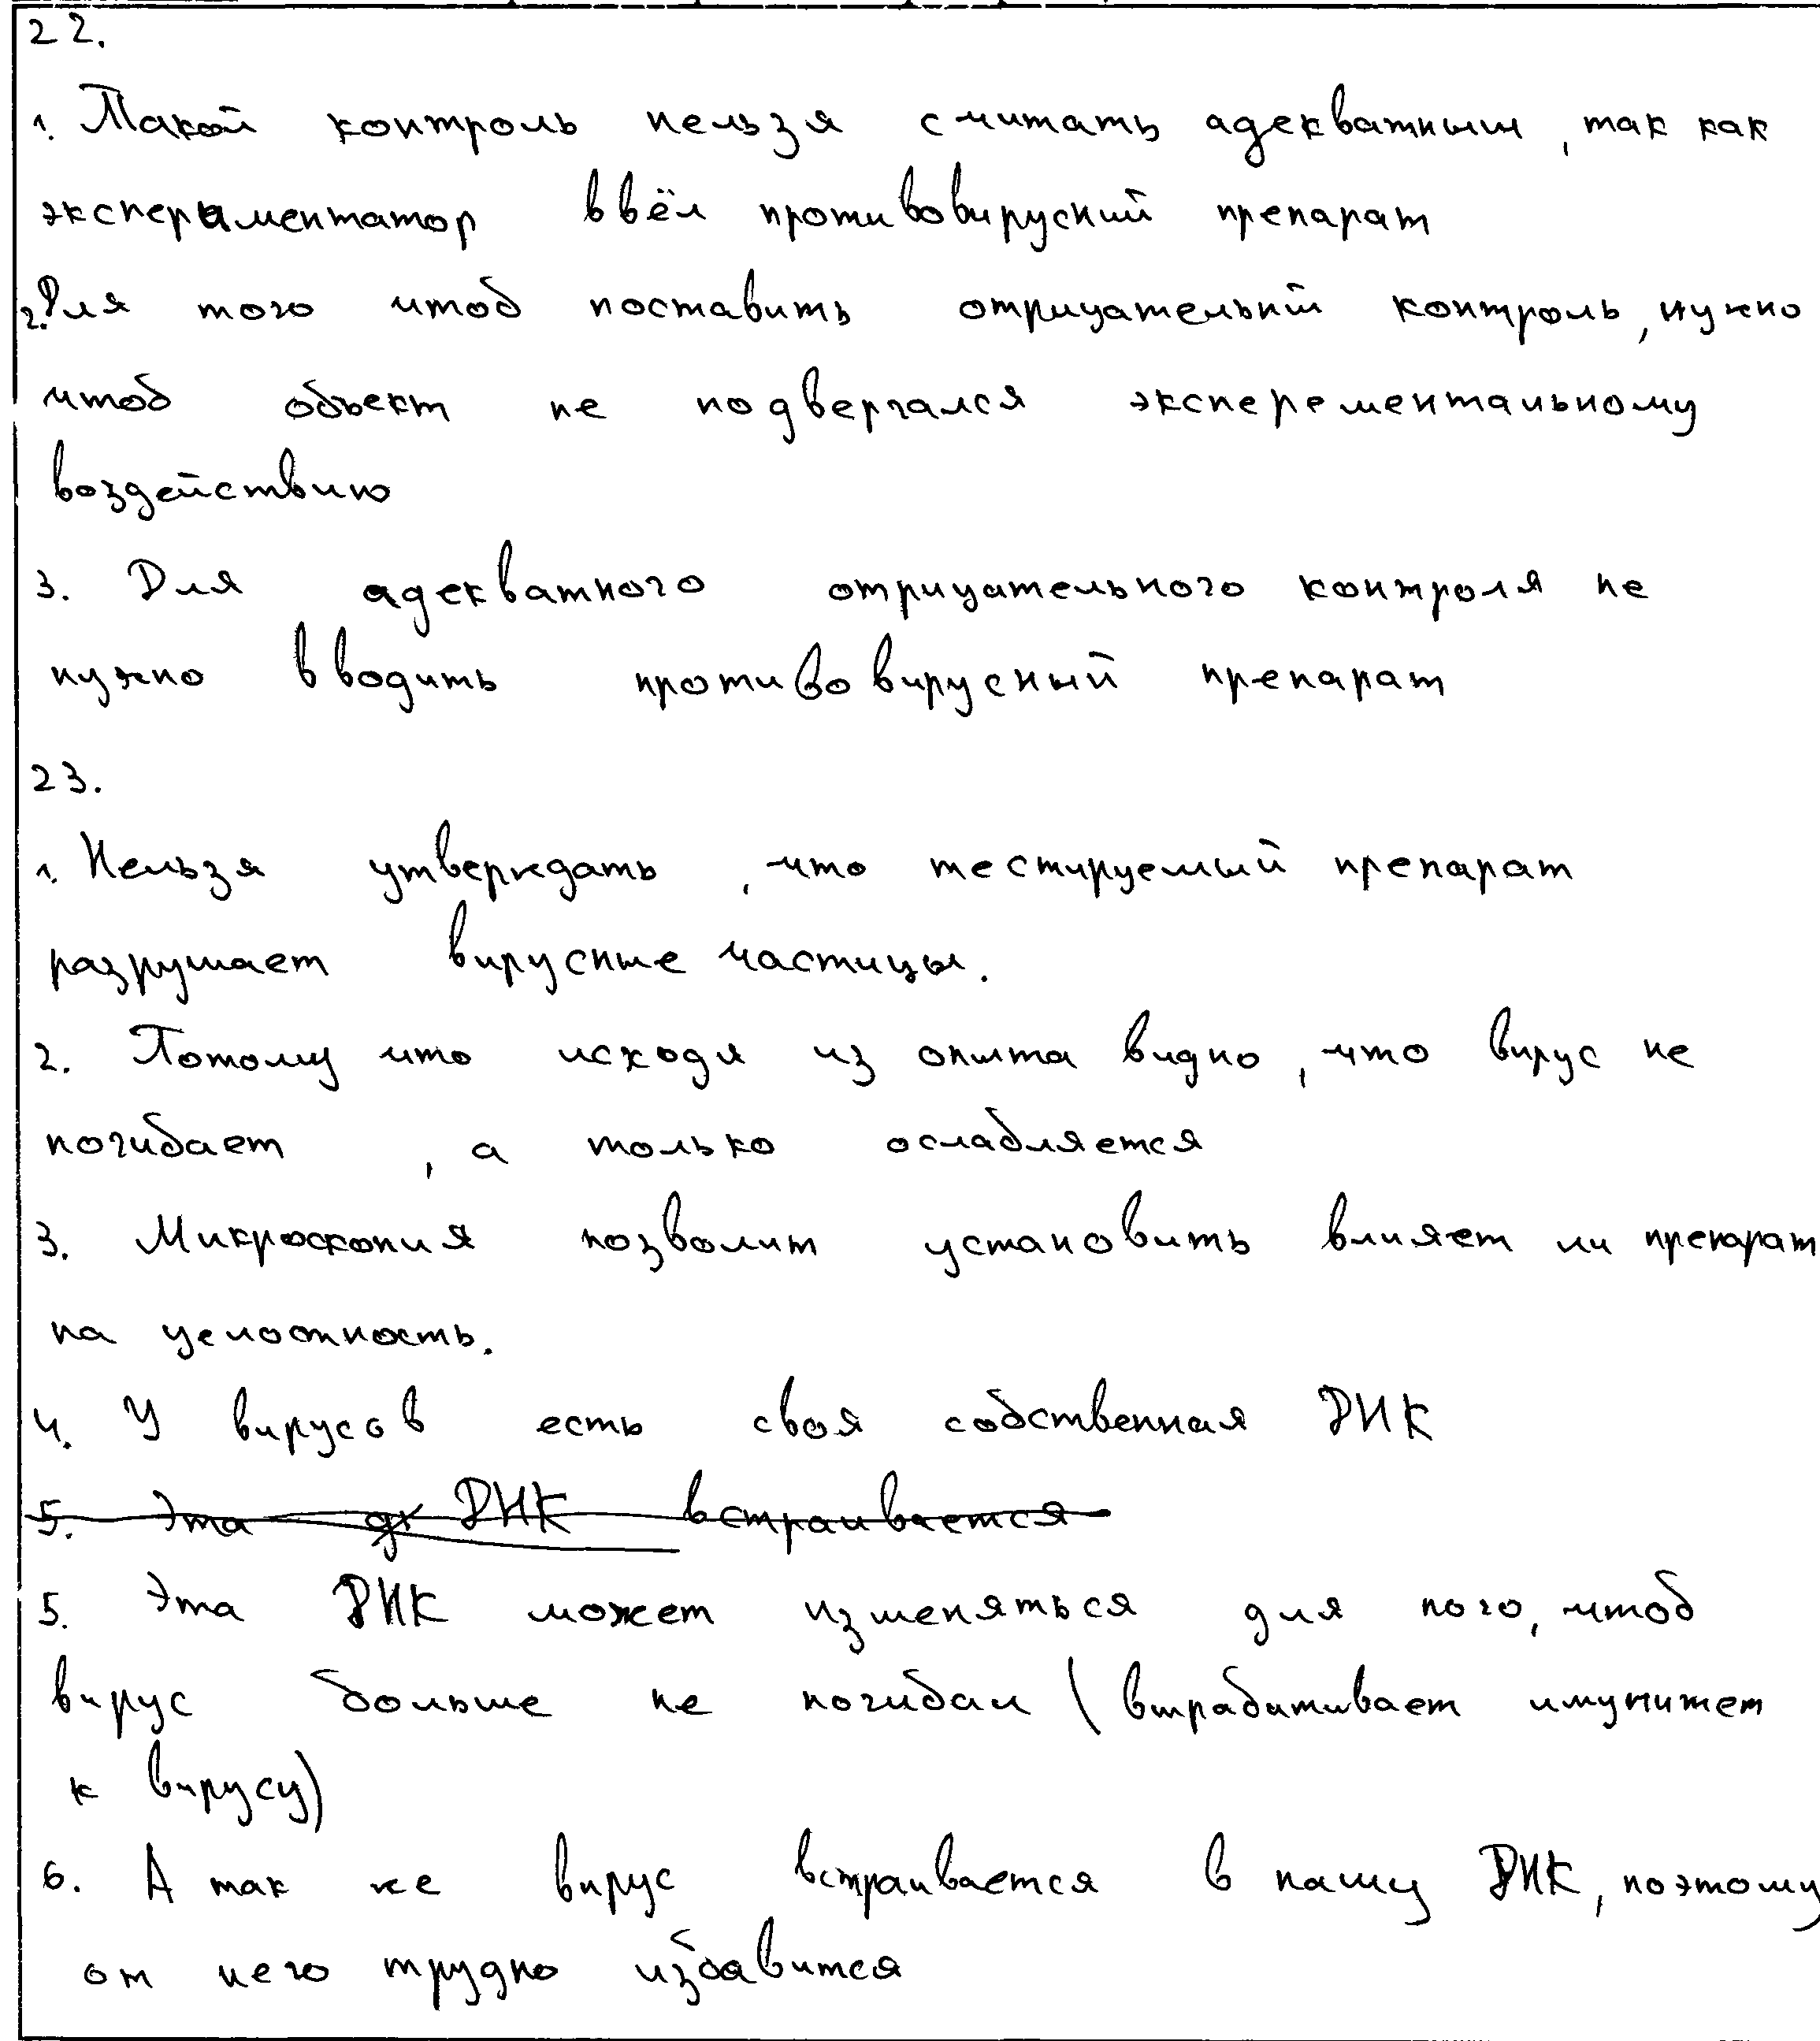 22.
1. Такой контроль нельзя считать адекватным, так как
эксперыментатор ввёл противовируский препарат
2. Для того чтоб поставить отрицательнй контроль, нужно
чтоб объект не подвергался эксперементальному
воздействию
3. Для адекватного отрицательного контроля не
нужно вводить противовирусный препарат
23.
1. Нельзя утверждать, что тестируемый препарат
разрушает вирусные частицы.
2. Потому что исходя из опыта видно, что вирус не
погибает, а только ослабляется
3. Микроскопия позволит установить влияет ли препарат
на целостность.
4. У вирусов есть своя собственная ДНК
5. Эта ДНК встраивается
5. Эта ДНК может изменяться для того, чтоб
вирус больше не погибал (вырабатывает имунитет
к вирусу)
6. А так же вирус встраивается в нашу ДНК, поэтому
от него трудно избавится